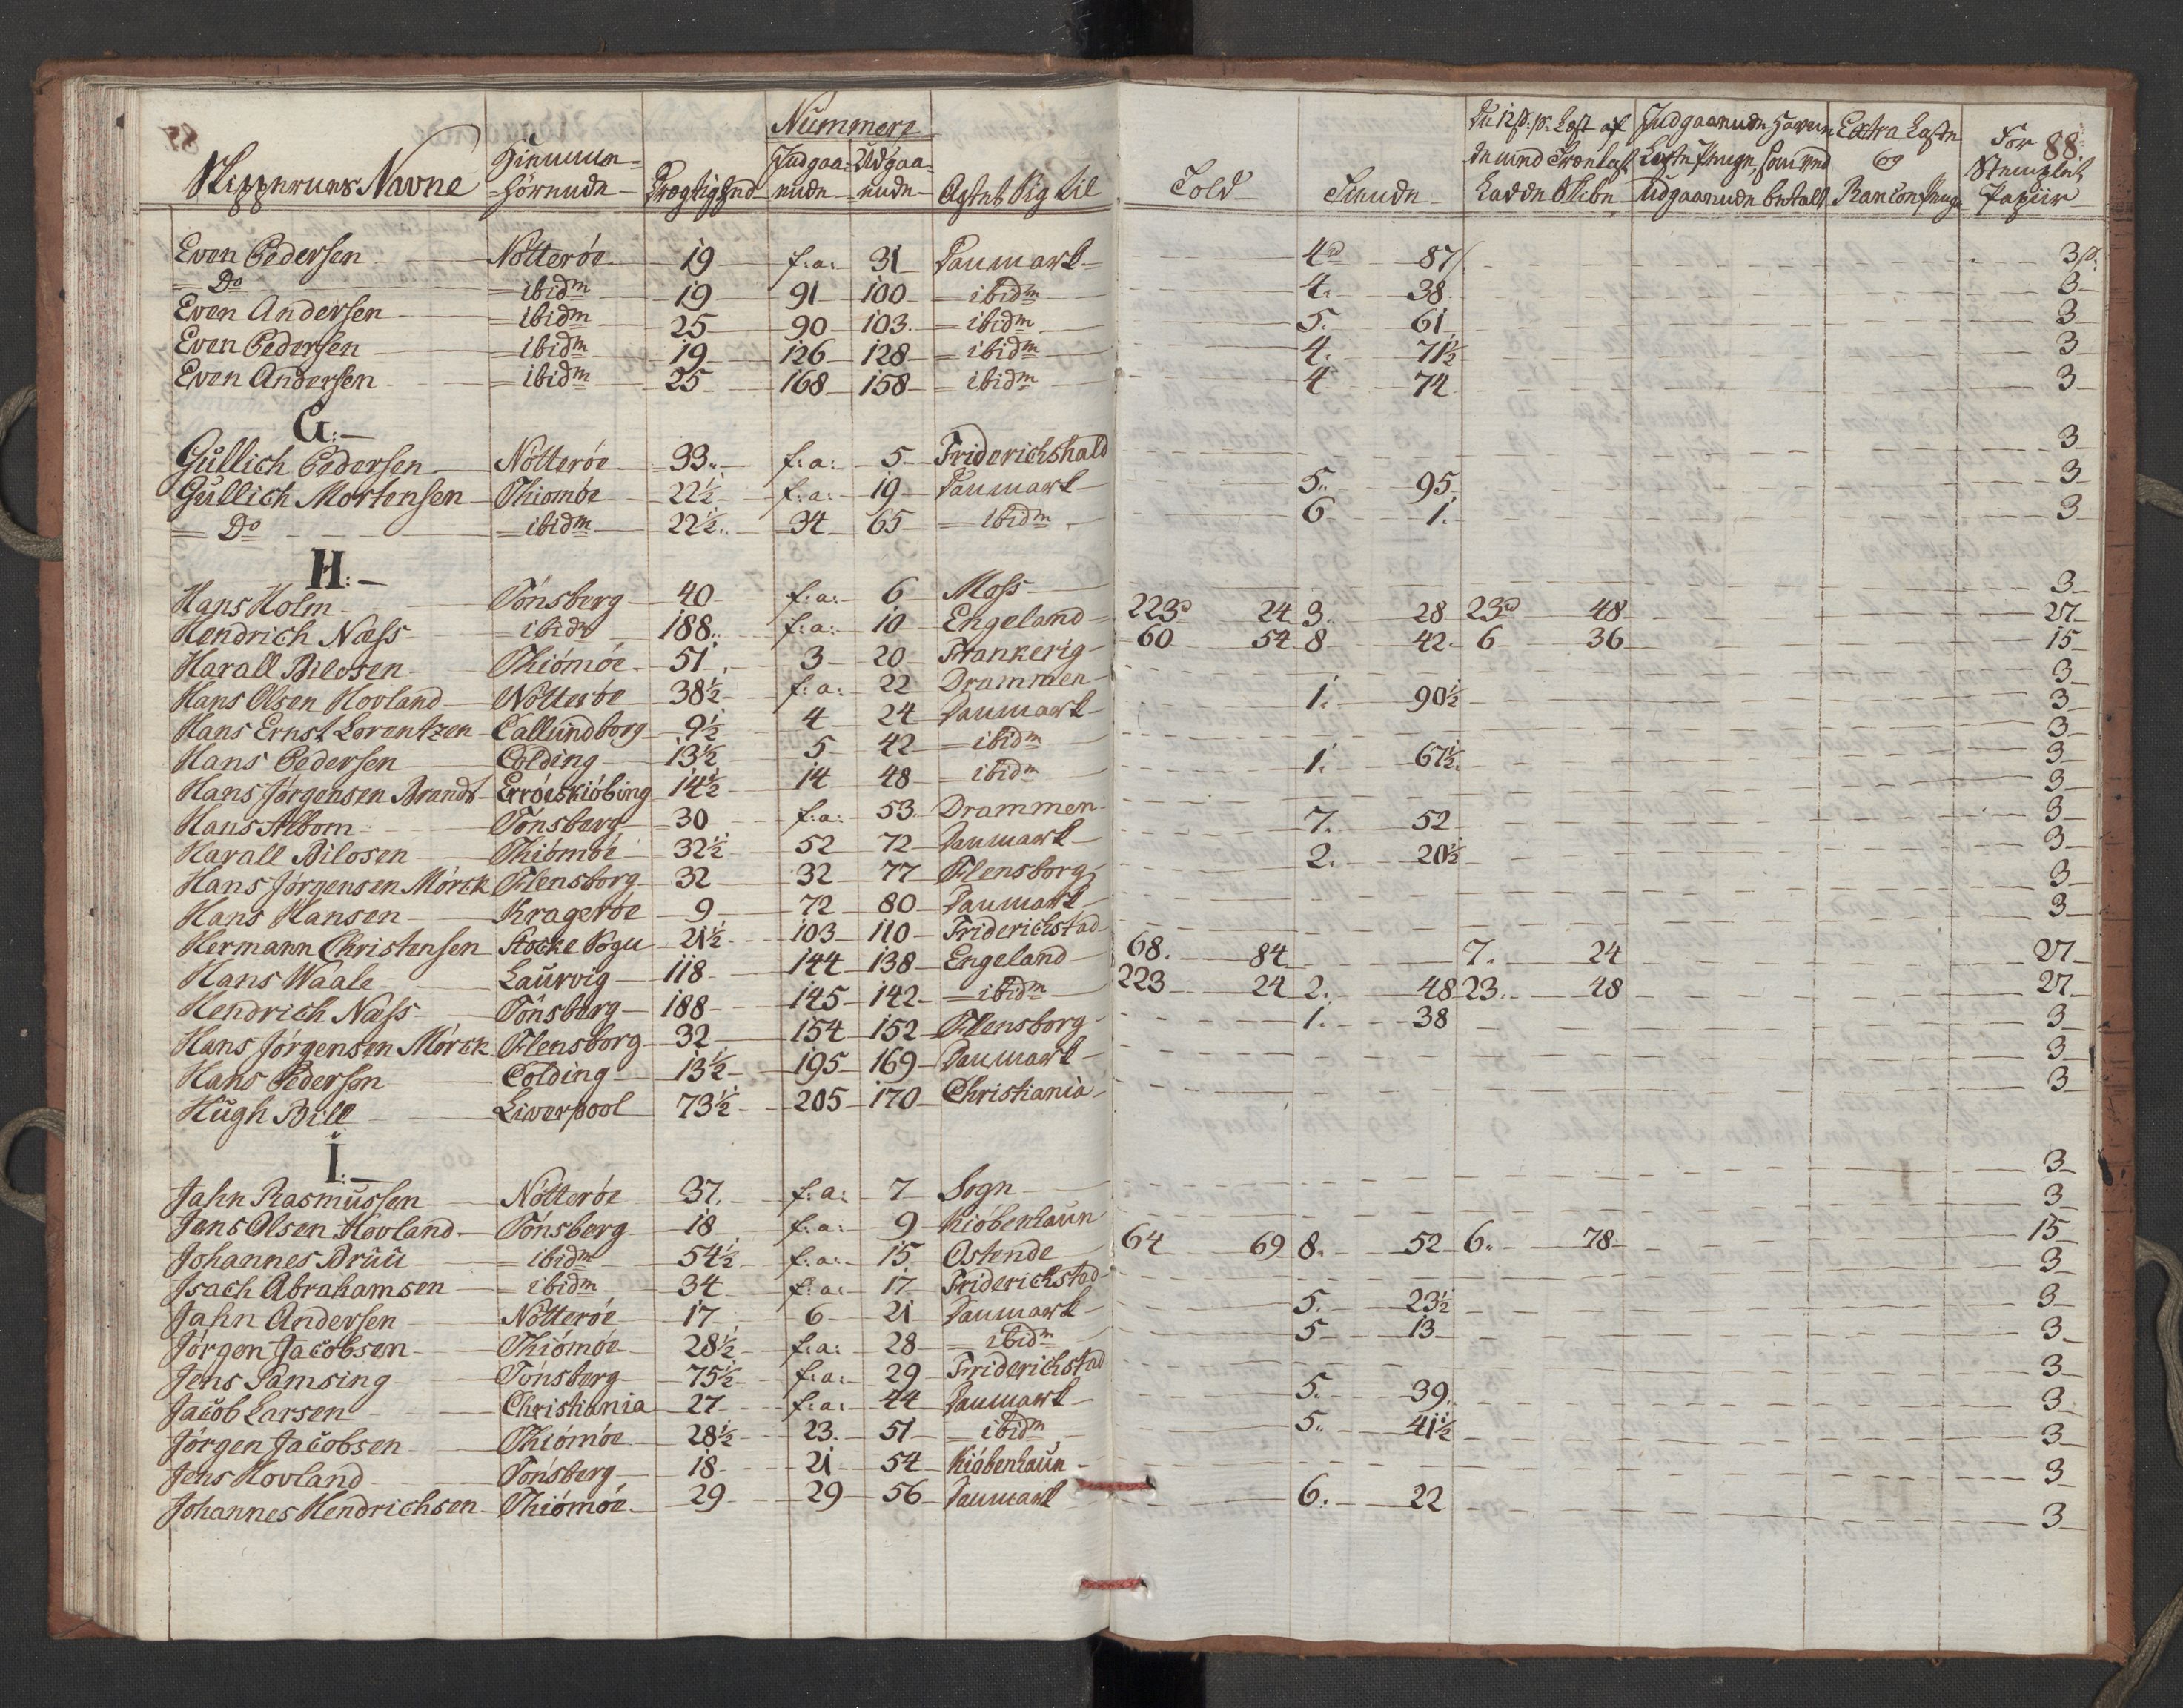 Nummere
Skippernes Navne Hiemme= =hörende Drægtighed Indgaa= =ende Udgaa= =ende Agtet sig til Told Sinede De 12 s. pr. Lest af For 88
Indgaaende Extra Laste og Stemplet
Udgaaende betalt Papiir
Even Pedersen Nötteröe 19 f:a: 31 Danmark 4 87 3
= Do = ibidm 19 91 100 = ibidm 4. 38 3
Even Andersen = ibidm 25 90 103. = ibidm 5. 61 3
Even Pedersen = ibidm 19 126 128 = ibidm 4. 71½ 3
Even Andersen = ibidm 25 168 158 = ibidm 4 74 3
G:
Gullich Pedersen Nötteröe 33 f:a: 5 Friderichshald 3
Gullich Mortensen Thiomöe 22½ f:a: 19 Danmark 5. 95. 3
= Do = ibidm 22½ 34 65 = ibidm 6 1. 3
H:
Hans Holm Tönsberg 40 f:a: 6 Moss 3
Hendrich Næss = ibidm 188 f:a: 10 Engeland 223 24 3. 28 23 48 27
Harall Bilosen Thiömöe 51 3 20 Frankerig 60 54 8 42 6 36 15
Hans Olsen Hovland Nötteröe 38½ f:a: 22 Drammen 3
Hans Ernst Lorentzen Callundborg 9½ 4 24 Danmark 1. 90½ 3
Hans Pedersen Colding 13½ 5 42 = ibidm 3
Hans Jörgensen Brandt Erröeskiöbing 14½ 14 48 = ibidm 1. 67½ 3
Hans Albom Tönsberg 30 f:a: 53 Drammen 3
Harall Bilosen Thiömöe 32½ 52 72 Danmark 7. 52 3
Hans Jörgensen Mörck Flensborg 32 32 77 Flensborg 2. 20½ 3
Hans Hansen Krageröe 9 72 80 Danmark 3
Hermann Christensen Stocke Sogn 21½ 103 110 Friderichstad 3
Hans Waale Laurvig 118 144 138 Engeland 68. 84 7. 24 27
Hendrich Næss Tönsberg 188 145 142 = ibidm 223 24 2. 48 23. 48 27
Hans Jörgensen Mörck Flensborg 32 154 152 Flensborg 1. 38 3
Hans Pedersen Colding 13½ 195 169 Danmark 3
Hugh Bill Liverpool 73½ 205 170 Christiania 3
I:
Jahn Rasmussen Nötteröe 37. f:a: 7 Sogn 3
Jens Olsen Hovland Tönsberg 18 f:a: 9 Kiöbenhaun 3
Johannes Bruu = ibidm 54½ f:a: 15 Ostende 64 69 8. 52 6. 78 15
Isach Abrahamsen = ibidm 34 f:a: 17 Friderichstad 3
Jahn Andersen Nötteröe 17 6 21 Danmark 5. 23½ 3
Jörgen Jacobsen Thiömöe 28½ f:a: 28 = ibidm 5 13 3
Jens Samsing Tönsberg 75½ f:a: 29 Friderichstad 3
Jacob Larsen Christiania 27 f:a: 44 Danmark 5. 39. 3
Jörgen Jacobsen Thiömöe 28½ 23. 51 = ibidm 5. 41½ 3
Jens Hovland Tönsberg 18 21 54 Kiöbenhaun 3
Johannes Hendrichsen Thiömöe 29 29 56 Danmark 6. 22 3